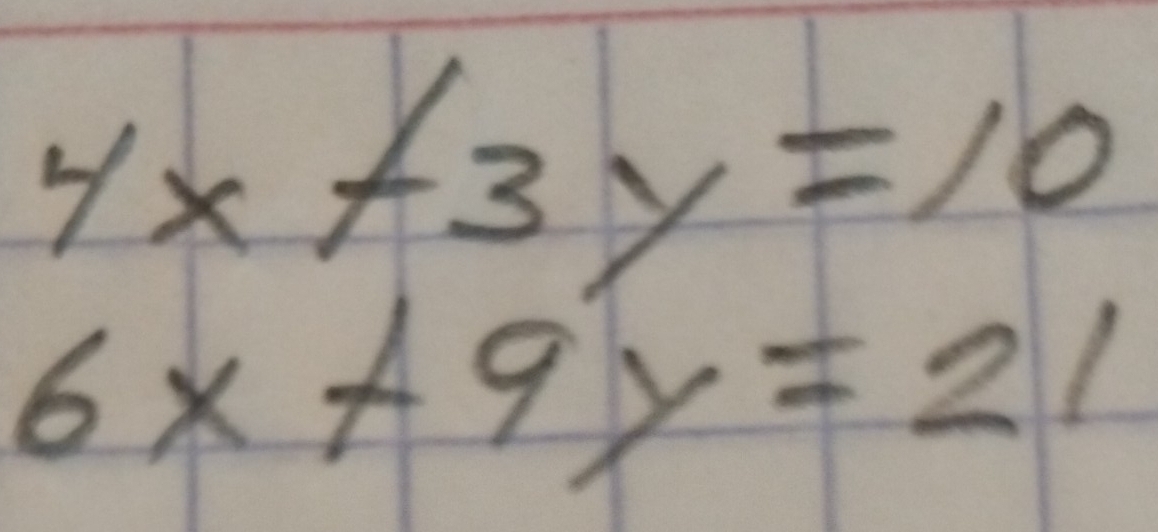 4x + 3y = 10
6x + 9y = 21